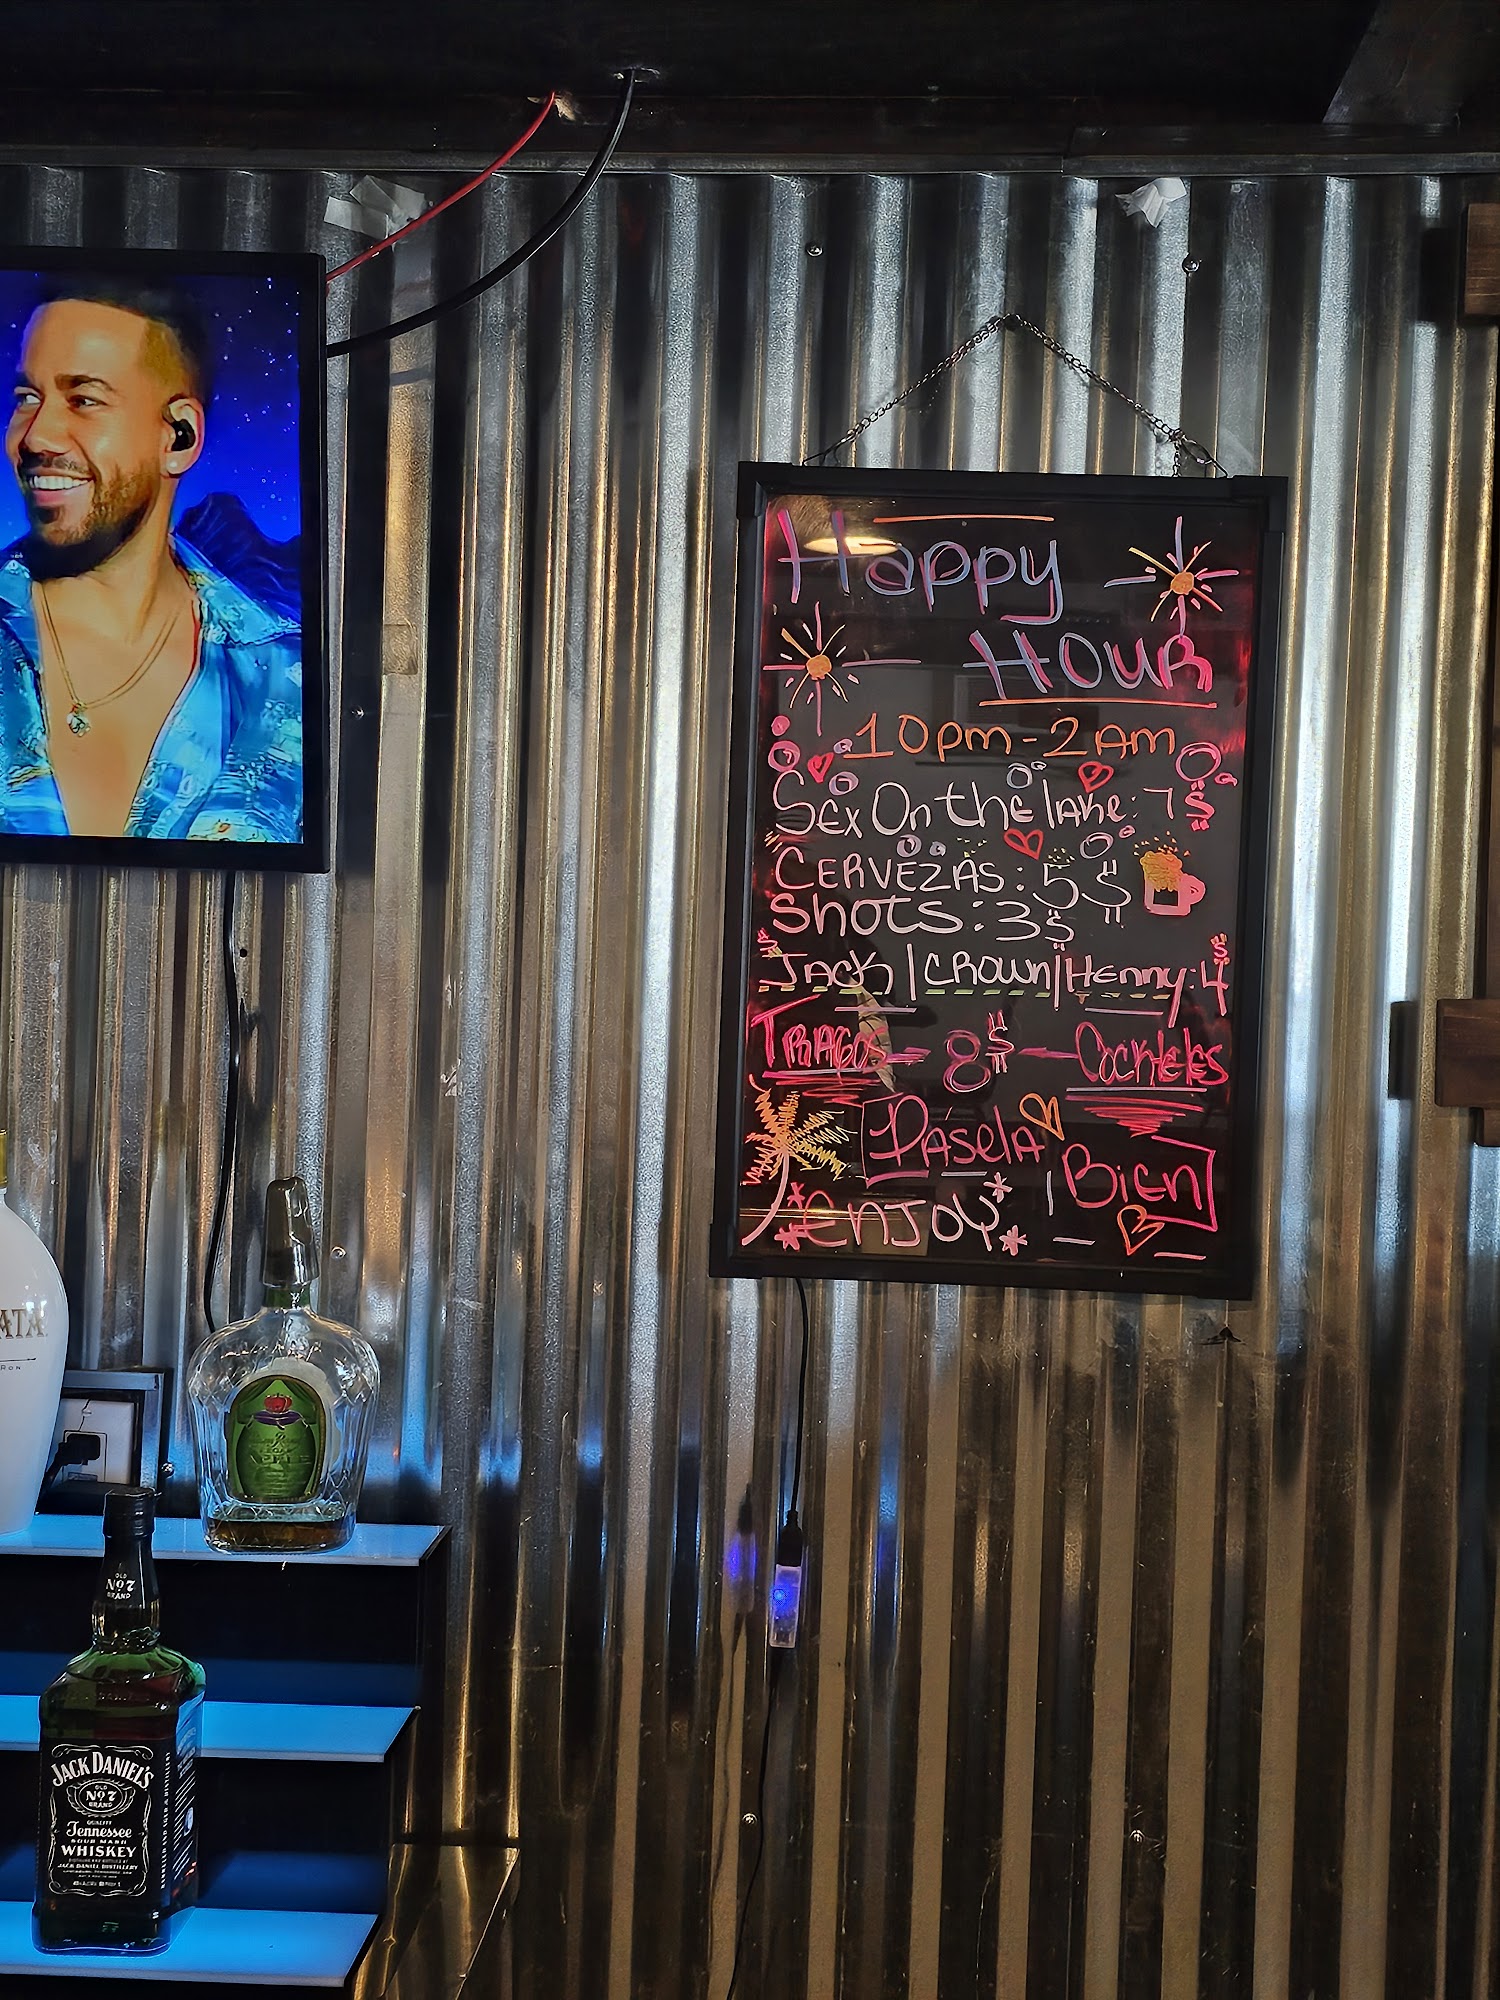 Happy
HOUR
10pm-2Am
Sex On the lake: 7$
CERVEZAS: 5$
Shots: 3$
JACK | CROWN | Henny: 4$
TRAGOS - 8$ - Cockteles
PáselA Bien
*Enjoy*
ATA
RON
APPLE
OLD
No 7
BRAND
JACK DANIEL'S
OLD
No 7
BRAND
QUALITY
Tennessee
SOUR MASH
WHISKEY
JACK DANIEL DISTILLERY